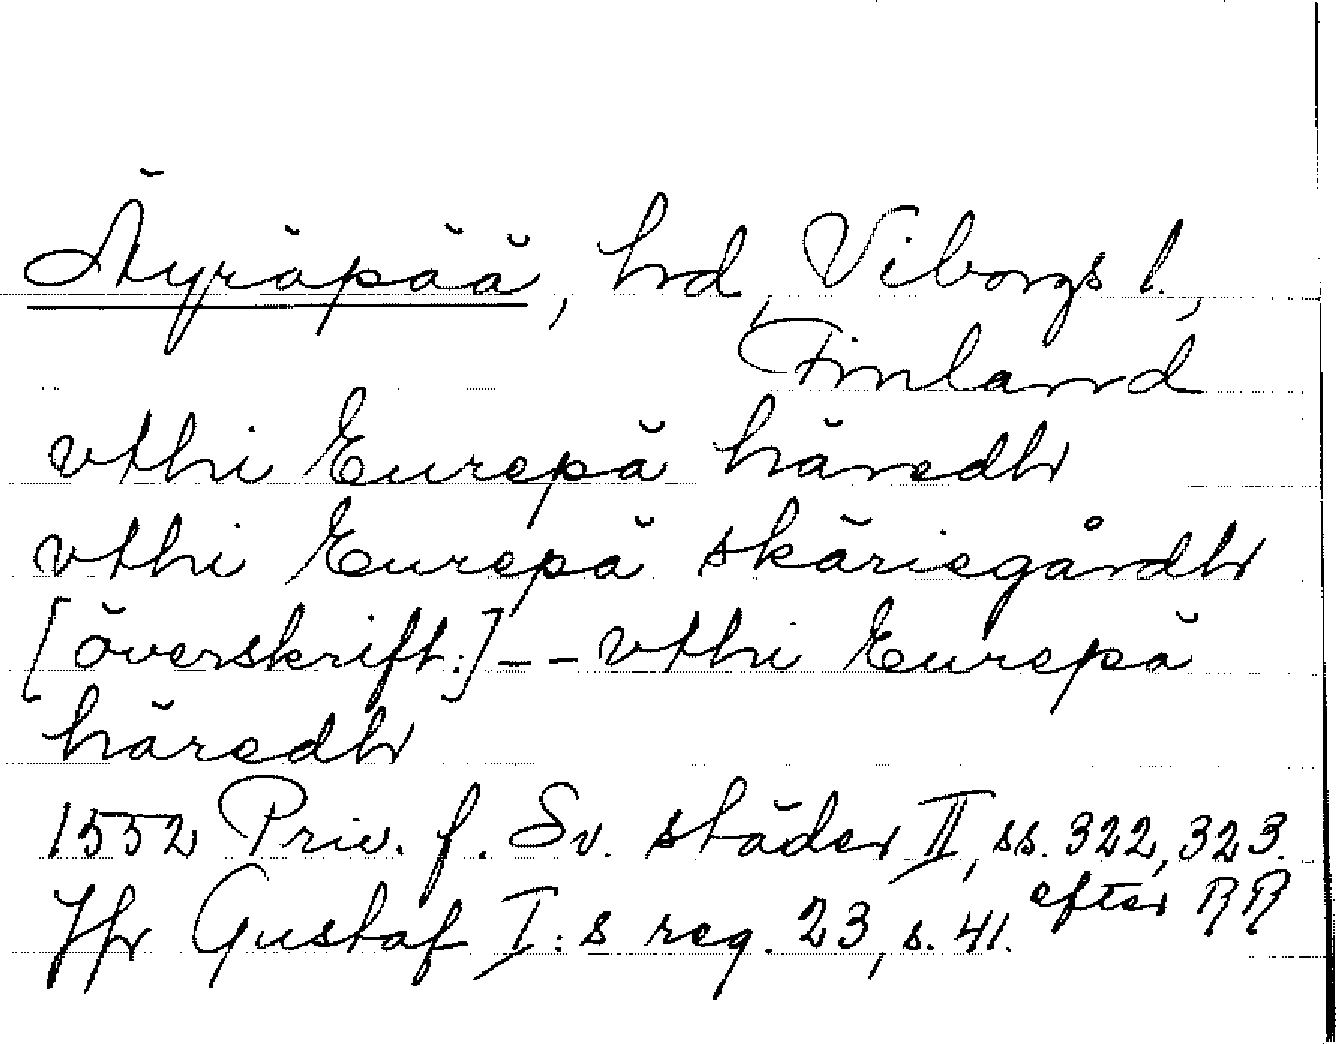 Äyräpää, hrd, Viborgs l.,
Finland
vthi Eurepä häredh
vthi Eurepä skäriegårdh
[överskrift:] -- vthi Eurepä
häredh
1552 Priv. f. Sv. städer II, ss. 322, 323.
efter RR
Jfr Gustaf I:s reg. 23, s. 41.